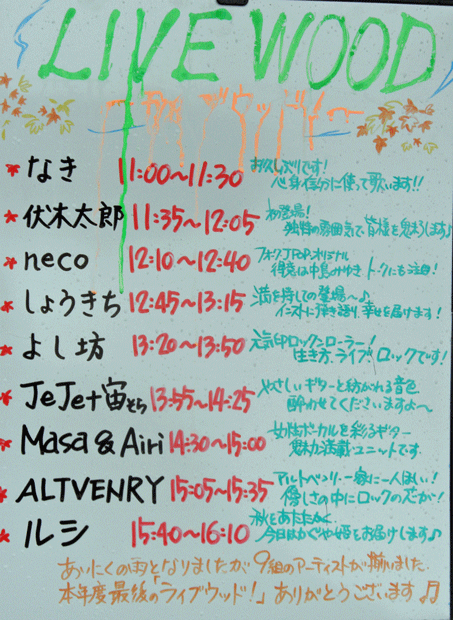 LIVE WOOD
なき 11:00〜11:30 お久しぶりです!
心身自分に使って歌います!!
伏木太郎 11:35〜12:05 初登場!
独特の雰囲気で皆様を魅了します♪
neco 12:10〜12:40 フォークJPOPオリジナル
得意は中島みゆき トークにも注目!
しょうきち 12:45〜13:15 満を持しての登場〜♪
インストに弾き語り、幸せを届けます!
よし坊 13:20〜13:50 元気印ロックンローラー!
生き方、ライブ、ロックです!
JeJe+宙そら 13:55〜14:25 やさしいギターと紡がれる音色
酔わせてくださいますよ〜
Masa & Airi 14:30〜15:00 女性ボーカルを彩るギター
魅力満載ユニットです
ALTVENRY 15:05〜15:35 アルトベンリ、一家に一人ほしい!
優しさの中にロックの芯が!
ルシ 15:40〜16:10 秋をあたたかく
今日はかぐや姫をお届けします♪
あいにくの雨となりましたが9組のアーティストが揃いました
本年度最後の「ライブウッド!」ありがとうございます♬